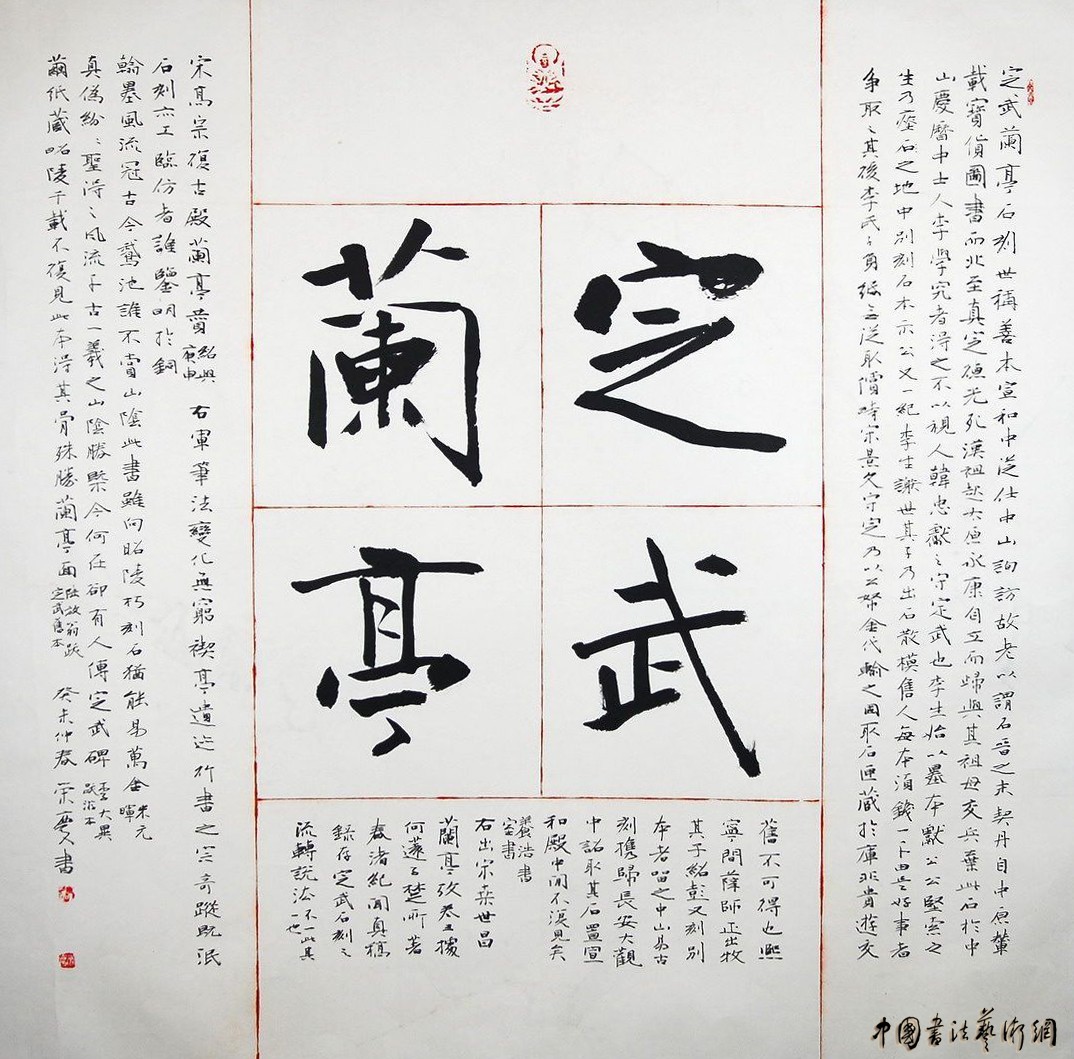 定武蘭亭石刻世稱善本宣和中從仕中山詢訪故老以謂石晉之末契丹自中原輦
載寶貨圖書而北至真定德光死漢祖起太原永康自立而歸與其祖母交兵棄此石於中
山慶曆中士人李學究者得之不以視人韓忠獻之守定武也李生始以墨本獻公公堅索之
生乃瘞石之地中別刻石本示公又一紀李生謝世其子乃出石散模售人每本須錢一千由是好事者
爭取之其後李氏子負緡無從取償時宋景文守定乃以公帑金代輸之因取石匣藏於庫非貴遊交
定武
蘭亭
舊不可得也熙
寧間薛師正出牧
其子紹彭又刻別
本者留之中山易古
刻攜歸長安大觀
中詔取其石置宣
和殿中聞不復見矣
右出宋桑世昌
蘭亭攷卷三據
何薳子楚所著
春渚紀聞真稿
錄存定武石刻之
流轉說法不一此其一也
宋高宗復古殿蘭亭贊紹興庚申 右軍筆法變化無窮禊亭遺迹行書之宗奇蹤既泯
石刻亦工臨仿者誰鑒明於銅
翰墨風流冠古今鵝池誰不賞山陰此書雖向昭陵朽刻石猶能易萬金朱元暉
真偽紛紛聖得之風流千古一羲之山陰勝槩今何在卻有人傳定武碑李大異跋滁本
繭紙藏昭陵千載不復見此本得其骨殊勝蘭亭面陸放翁跋定武舊本 癸未仲春 書
中國書法藝術網